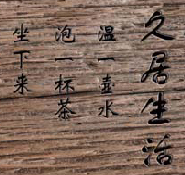 久居生活
温一壶水
泡一杯茶
坐下来